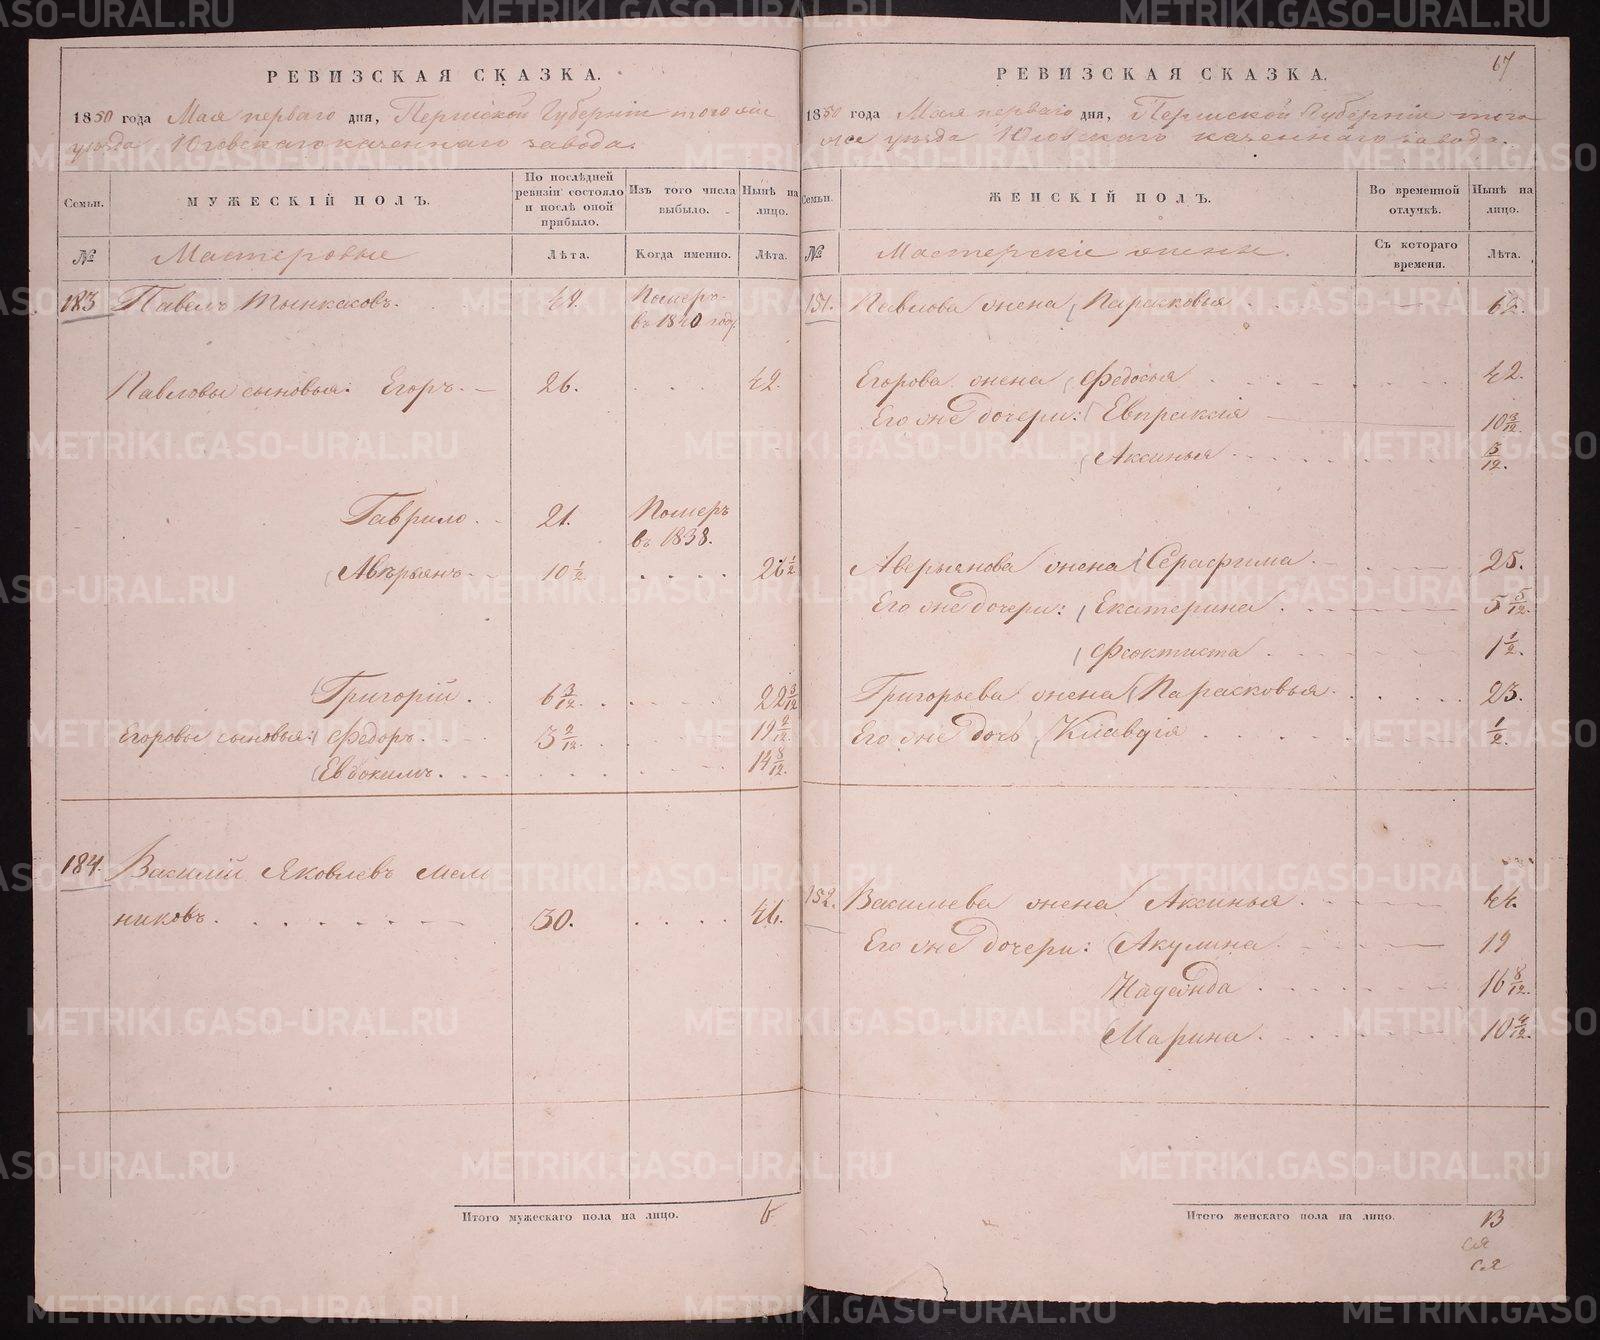 РЕВИЗСКАЯ СКАЗКА.
1850 года Мая перваго дня, Пермской Губерніи того же
уѣзда Юговскаго казеннаго завода.
Семьи.
МУЖЕСКІЙ ПОЛЪ.
По послѣдней ревизіи состояло и послѣ оной прибыло.
Изъ того числа выбыло.
Нынѣ на лицо.
№
Мастеровые
Лѣта.
Когда именно.
Лѣта.
183 Павелъ Тынкасовъ. Померъ в 1840 году
Павловы сыновья: Егоръ. 26. 42.
Гаврило. 21. Померъ в 1838.
Аверьянъ 10 1/2 26 1/2
Григорій 6 3/12 22 3/12
Егоровы сыновья: Федоръ. 3 2/12 19 2/12
Евдокимъ. 14 8/12
184. Василій Яковлевъ Мель
никовъ. 30. 46.
Итого мужескаго пола на лицо. 6
67
РЕВИЗСКАЯ СКАЗКА.
1850 года Мая перваго дня, Пермской Губерніи того
же уѣзда Юговскаго казеннаго завода.
Семьи.
ЖЕНСКІЙ ПОЛЪ.
Во временной отлучкѣ.
Нынѣ на лицо.
№
Мастерскіе жены.
Съ котораго времени.
Лѣта.
151. Павлова жена Парасковья 62.
Егорова жена Федосья 42.
Его же дочери: Евпраксія 10 3/12
Аксинья 3/12.
Аверьянова жена Серафима 25.
Его же дочери: Екатерина 5 5/12.
Феоктиста 1 1/2.
Григорьева жена Парасковья 23.
Его же дочь Клавдія 1/2.
152. Васильева жена Аксинья 44.
Его же дочери: Акулина 19
Надежда 16 8/12.
Марина 10 4/12.
Итого женскаго пола на лицо. 13
METRIKI.GASO-URAL.RU